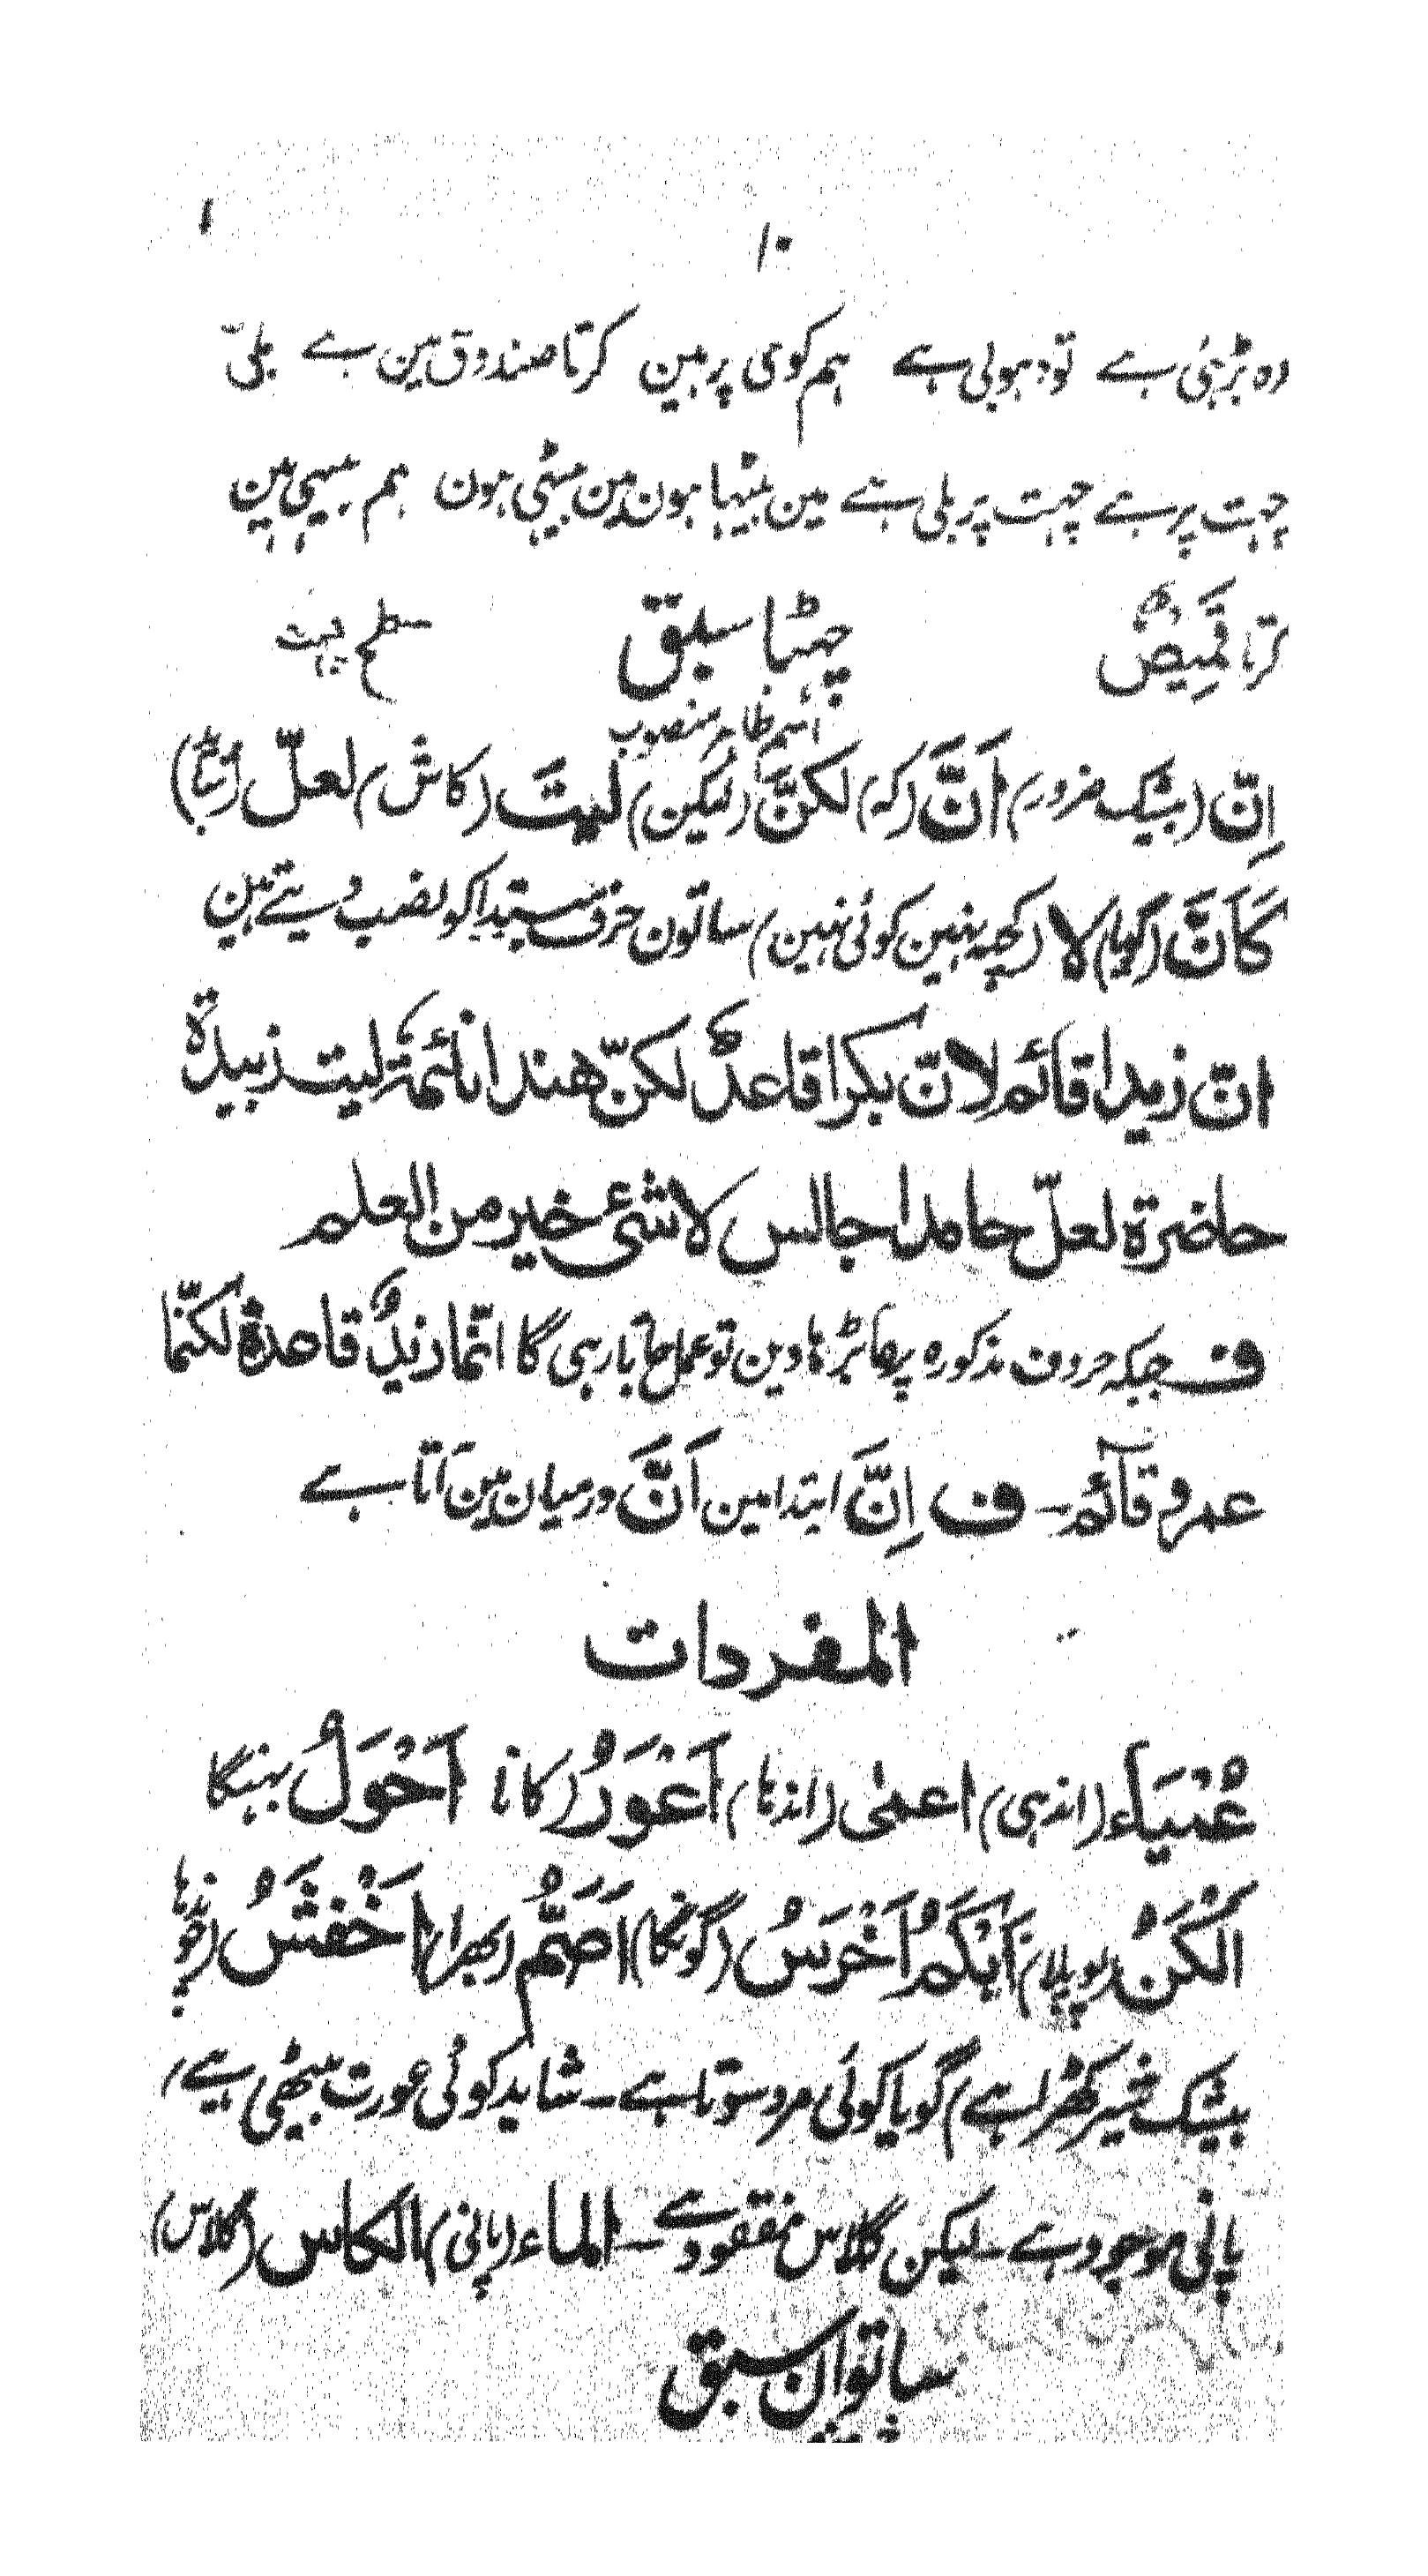 ۱۰
وہ بڑہئی ہے تو دہوبی ہے ہم کوی پر ہین کرتا صندوق مین ہے بلی
چہت پر ہے چہت پر بلی ہے مین بیٹہا ہون مین بیٹہی ہون ہم ہین
کرتا قمیص چہٹا سبق سطح چہت
اسم ظاہر منصوب
اِنّ (بیشک ضرور) اَنَّ (کہ) لکنَّ (لیکن) لیت (کاش) لعلّ
کَاَنَّ (گویا) لا (کچہہ نہین کوئی نہین) ساتون حرف مبتدا کو نصب دیتے ہین
انّ زیدا قائم لانّ بکرا قاعدٌ لکنّ هندا نائمة لیت زبیدة
حاضرة لعلّ حامدا جالس لا شئ خیر من العلم
ف جبکہ حروف مذکورہ پر ما بڑہا دین تو عمل جاتا رہی گا انّما زیدٌ قاعدٌ لکنّما
عمرو قآئم ۔ ف اِنَّ ابتدا مین اَنَّ درمیان مین آتا ہے
المفردات
عُمْیَاء (اندہی) اعمٰی (اندہا) اَعْوَرُ (کانا اَحْوَلُ بہینگا
اَلْکَنُ اَبْکَمُ اَخْرَسُ (گونگا) اَصَمُّ (بهرا) اَخْفَشُ
بیشک خیر کھڑا ہے) گویا کوئی مرد سوتا ہے ۔ شاید کوئی عورت بیٹھی ہے
پانی موجود ہے ۔ لیکن گلاس مفقود ہے ۔ الماء (پانی) الکاس (گلاس)
ساتوان سبق